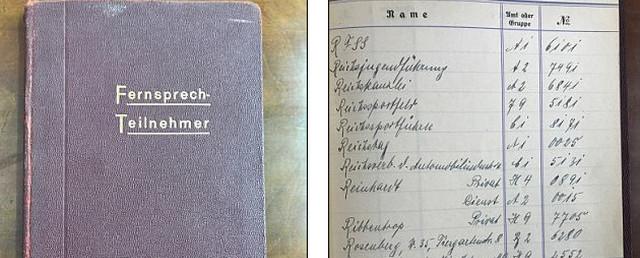 Fernsprech-
Teilnehmer
Name Amt oder Gruppe №
RFSS A1 6101
Reichsjugendführung A2 7491
Reichskanzlei A2 6841
Reichssportfeld J9 5181
Reichssportführer C1 8171
Reichstag A1 0025
Reichsverb. d. Automobilindustrie A1 5131
Reinhardt Privat H4 0891
Dienst A2 0015
Ribbentrop Privat H9 7705
Rosenberg, W. 35, Tiergartenstr. 8 B2 6280
H9 4552